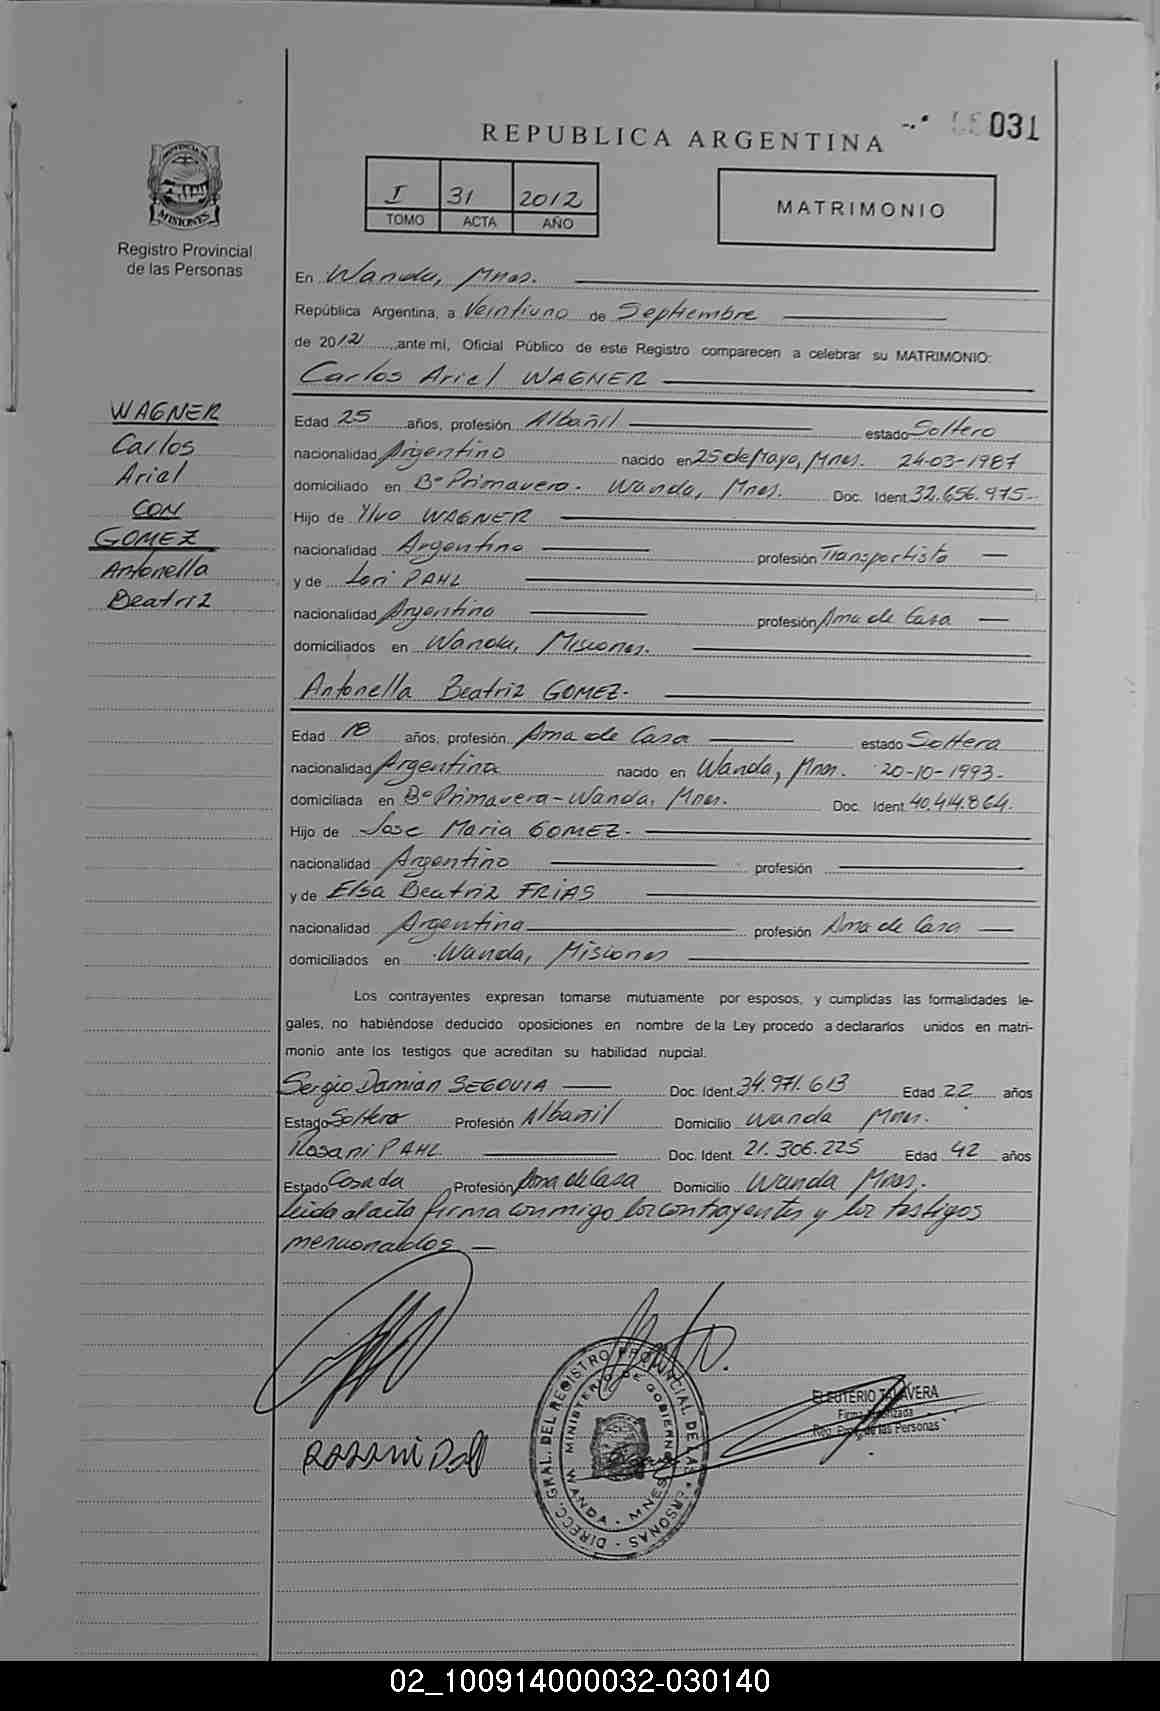 REPUBLICA ARGENTINA
031
PROVINCIA DE
MISIONES
Registro Provincial
de las Personas
I 31 2012
TOMO ACTA AÑO
MATRIMONIO
En Wanda, Mnes.
República Argentina, a Veintiuno de Septiembre
de 2012, ante mí, Oficial Público de este Registro comparecen a celebrar su MATRIMONIO:
Carlos Ariel WAGNER
WAGNER
Carlos
Ariel
CON
GOMEZ
Antonella
Beatriz
Edad 25 años, profesión Albañil estado Soltero
nacionalidad Argentino nacido en 25 de Mayo, Mnes. 24-03-1987
domiciliado en Bº Primavera. Wanda, Mnes. Doc. Ident. 32.656.975-
Hijo de Ylvo WAGNER
nacionalidad Argentino profesión Transportista
y de Lori PAHL
nacionalidad Argentina profesión Ama de Casa
domiciliados en Wanda, Misiones.
Antonella Beatriz GOMEZ.
Edad 18 años, profesión Ama de Casa estado Soltera
nacionalidad Argentina nacido en Wanda, Mnes. 20-10-1993-
domiciliada en Bº Primavera-Wanda, Mnes. Doc. Ident. 40.414.864.
Hijo de Jose Maria GOMEZ.
nacionalidad Argentino profesión
y de Elsa Beatriz FRIAS
nacionalidad Argentina profesión Ama de Casa
domiciliados en Wanda, Misiones
Los contrayentes expresan tomarse mutuamente por esposos, y cumplidas las formalidades le-
gales, no habiéndose deducido oposiciones en nombre de la Ley procedo a declararlos unidos en matri-
monio ante los testigos que acreditan su habilidad nupcial.
Sergio Damian SEGOVIA Doc. Ident. 34.971.613 Edad 22 años
Estado Soltero Profesión Albañil Domicilio Wanda Mnes.
Rosani PAHL Doc. Ident. 21.306.225 Edad 42 años
Estado Casada Profesión Ama de Casa Domicilio Wanda Mnes.
leida el acta firma conmigo los contrayentes y los testigos
mencionados
DIRECC. GRAL. DEL REGISTRO PROVINCIAL DE LAS PERSONAS
MINISTERIO DE GOBIERNO
WANDA - MNES
ELEUTERIO TALAVERA
Firma Autorizada
Reg. Prov. de las Personas
02_100914000032-030140